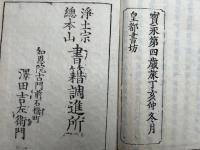 寳永第四歳旅丁亥仲冬月
皇都書坊
浄土宗
總本山
書籍調進所
知恩院古門前石橋町
澤田吉左衞門